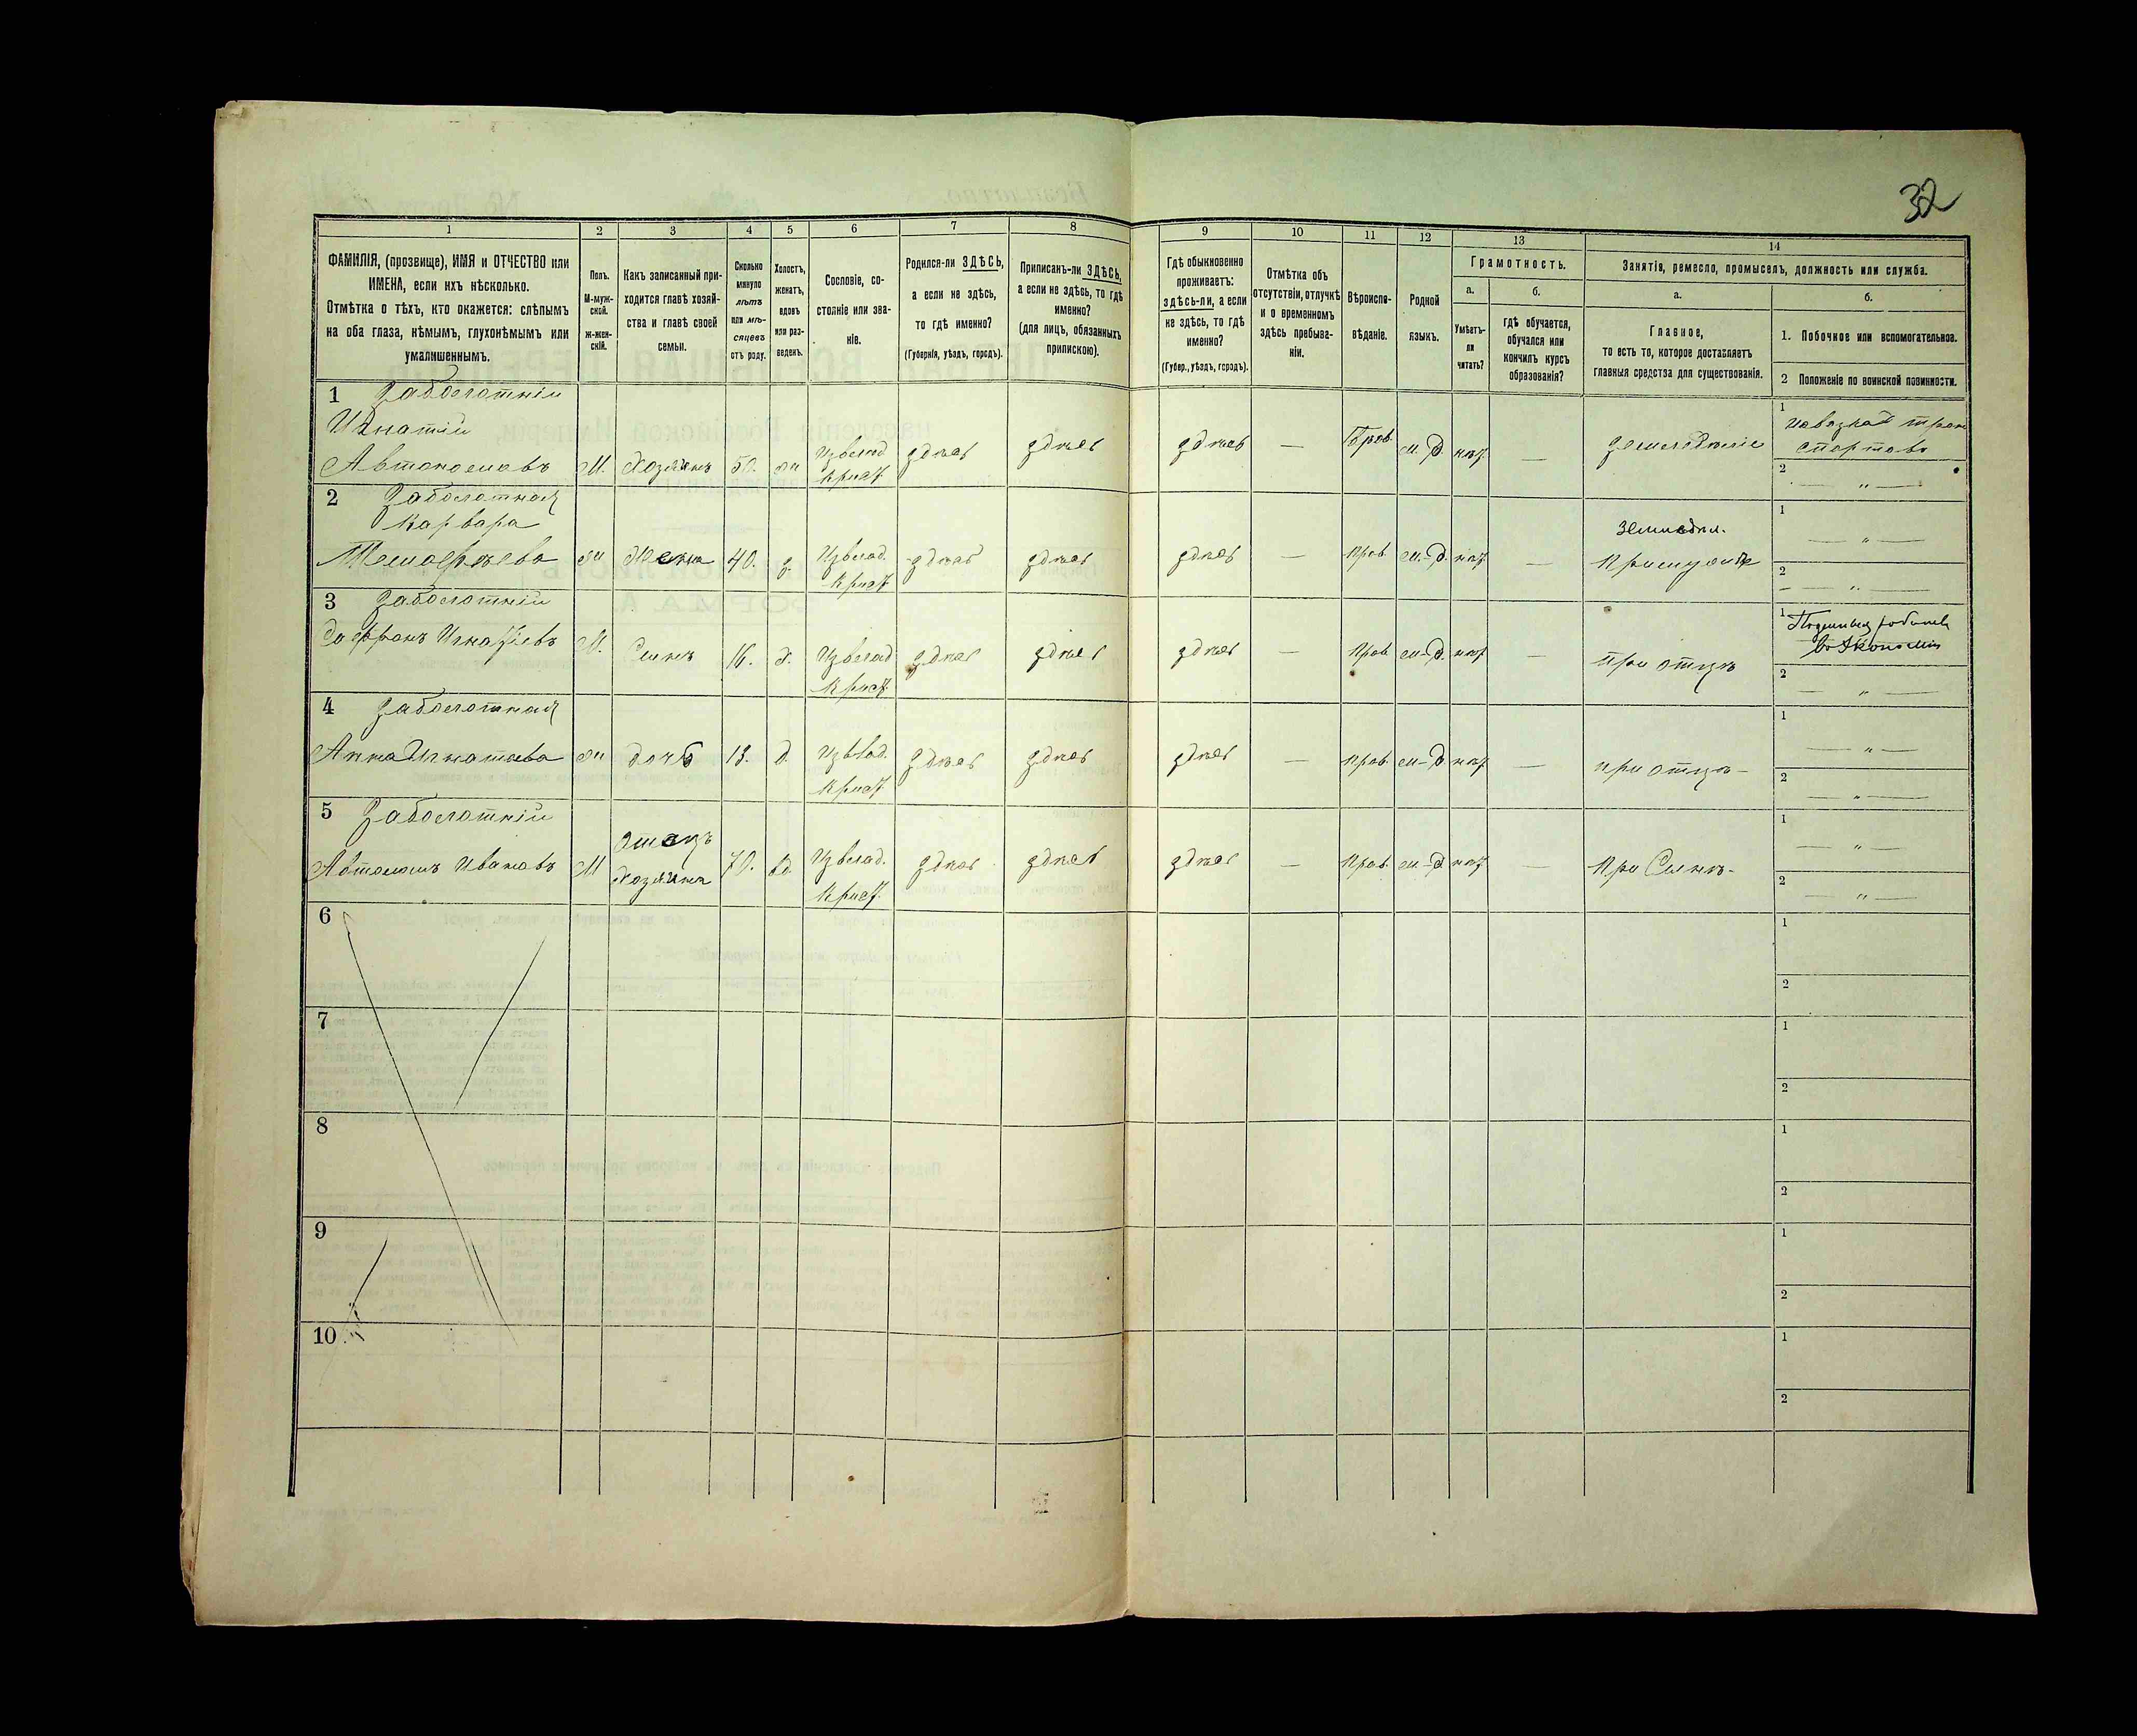 32
1
2
3
4
5
6
7
8
9
10
11
12
13
14
ФАМИЛІЯ, (прозвище), ИМЯ и ОТЧЕСТВО или
ИМЕНА, если ихъ нѣсколько.
Отмѣтка о тѣхъ, кто окажется: слѣпымъ
на оба глаза, нѣмымъ, глухонѣмымъ или
умалишеннымъ.
Полъ.
М-муж-
ской.
ж-жен-
скій.
Какъ записанный при-
ходится главѣ хозяй-
ства и главѣ своей
семьи.
Сколько
минуло
лѣтъ
или мѣ-
сяцевъ
отъ роду.
Холостъ,
женатъ,
вдовъ
или раз-
веденъ.
Сословіе, со-
стояніе или зва-
ніе.
Родился-ли ЗДѢСЬ,
а если не здѣсь,
то гдѣ именно?
(Губернія, уѣздъ, городъ).
Приписанъ-ли ЗДѢСЬ,
а если не здѣсь, то гдѣ
именно?
(для лицъ, обязанныхъ
припискою).
Гдѣ обыкновенно
проживаетъ:
здѣсь-ли, а если
не здѣсь, то гдѣ
именно?
(Губер., уѣздъ, городъ).
Отмѣтка объ
отсутствіи, отлучкѣ
и о временномъ
здѣсь пребыва-
ніи.
Вѣроиспо-
вѣданіе.
Родной
языкъ.
Грамотность.
а.
Умѣетъ-
ли
читать?
б.
гдѣ обучается,
обучался или
кончилъ курсъ
образованія?
Занятія, ремесло, промыселъ, должность или служба.
а.
Главное,
то есть то, которое доставляетъ
главныя средства для существованія.
б.
1. Побочное или вспомогательное.
2 Положеніе по воинской повинности.
1 Заболотній
Игнатій
Автономовъ М. Хозяинъ 50. ж Извлад Крист здѣсь здѣсь здѣсь — Прав. м.-р. нѣт — земледѣліе
1
2 — „ —
2 Заболотная
Варвара
Тимофѣева ж Жена 40. з. Извлад. Крист здѣсь здѣсь здѣсь — Прав. м.-р. нѣт — земледѣл. При мужѣ
1 — „ —
2 — „ —
3 Заболотній
Софронъ Игнатіевъ М. Сынъ 16. х. Извлад Крист. здѣсь здѣсь здѣсь — Прав. м.-р. нѣт — при отцѣ
1
2 — „ —
4 Заболотная
Анна Игнатова ж дочь 13. д. Извлад. Крист здѣсь здѣсь здѣсь — Прав. м-р нѣт — при отцѣ -
1 — „ —
2 — „ —
5 Заболотній
Автономъ Ивановъ М отецъ Хозяина 70. вд. Извлад. Крист. здѣсь здѣсь здѣсь — Прав. м-р нѣт — При Сынѣ -
1 — „ —
2 — „ —
6
1
2
7
1
2
8
1
2
9
1
2
10
1
2